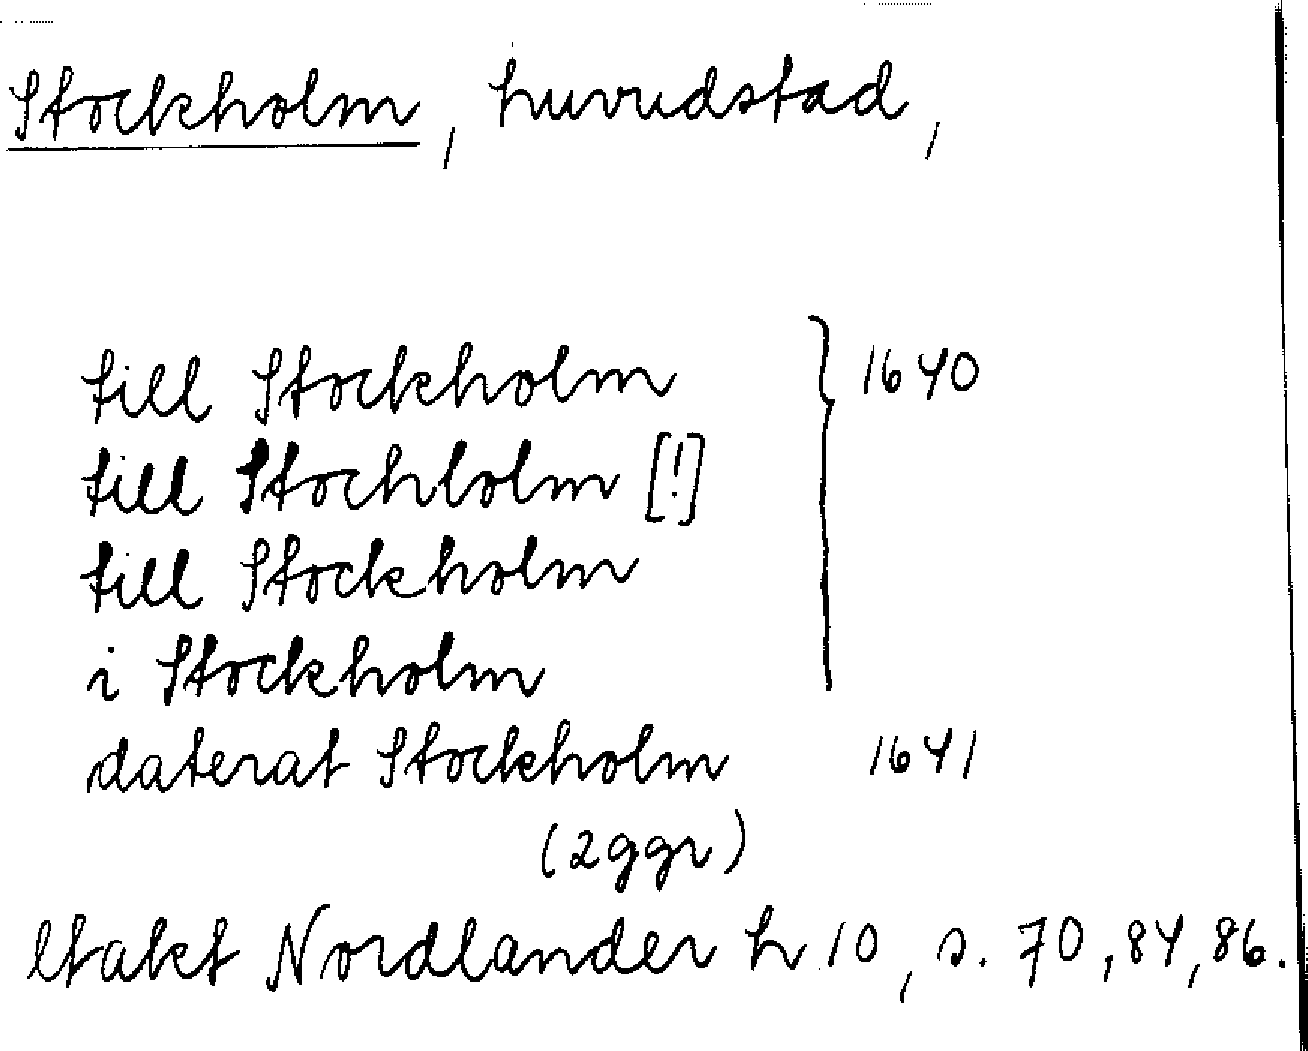 Stockholm, huvudstad,
till Stockholm } 1640
till Stochlolm [!]
till Stockholm
i Stockholm
daterat Stockholm 1641
(2ggr)
Utakt Nordlander h 10, s. 70, 84, 86.